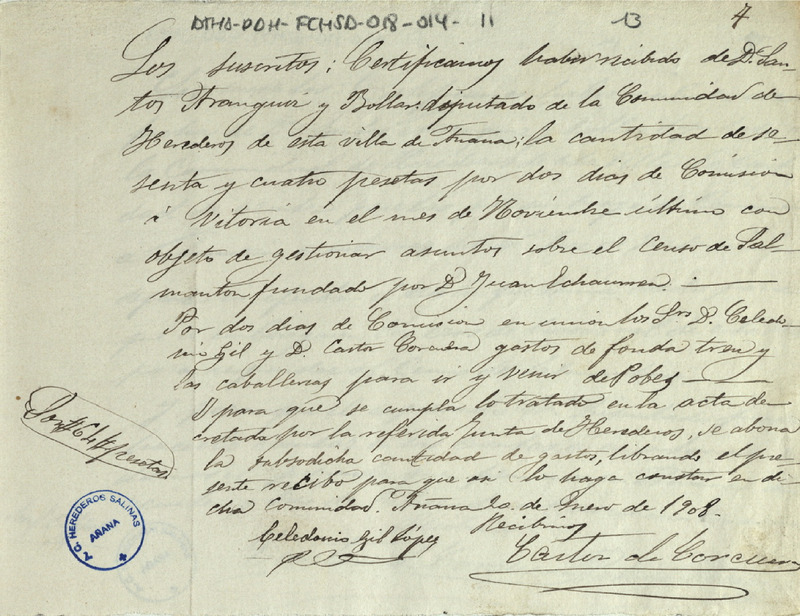 ATHA-DDH-FCHSD-018-014-11 13 4
Los suscritos; Certificamos haber recibido de D. San-
tos Aranguiz y Bollar diputado de la Comunidad de
Herederos de esta villa de Añana; la cantidad de se-
senta y cuatro pesetas por dos dias de Comision
á Vitoria en el mes de Noviembre último con
objeto de gestionar asuntos sobre el Censo de Sal
manton fundado por D Juan Echaurren.
Por dos dias de Comision en union los Srs D. Celedo-
nio Gil y D. Castor Corcuera gastos de fonda tren y
las caballerias para ir y venir de Pobes
Y para que se cumpla lo tratado en la acta de-
cretada por la referida Junta de Herederos, se abona
la subsodicha cantidad de gastos, librando el pre-
sente recibo para que asi lo haga constar en di-
cha Comunidad. Añana 20 de Enero de 1908.
Recibimos
Son # 64 # pesetas
Celedonio Gil López
Castor de Corcuera
HEREDEROS SALINAS
AÑANA